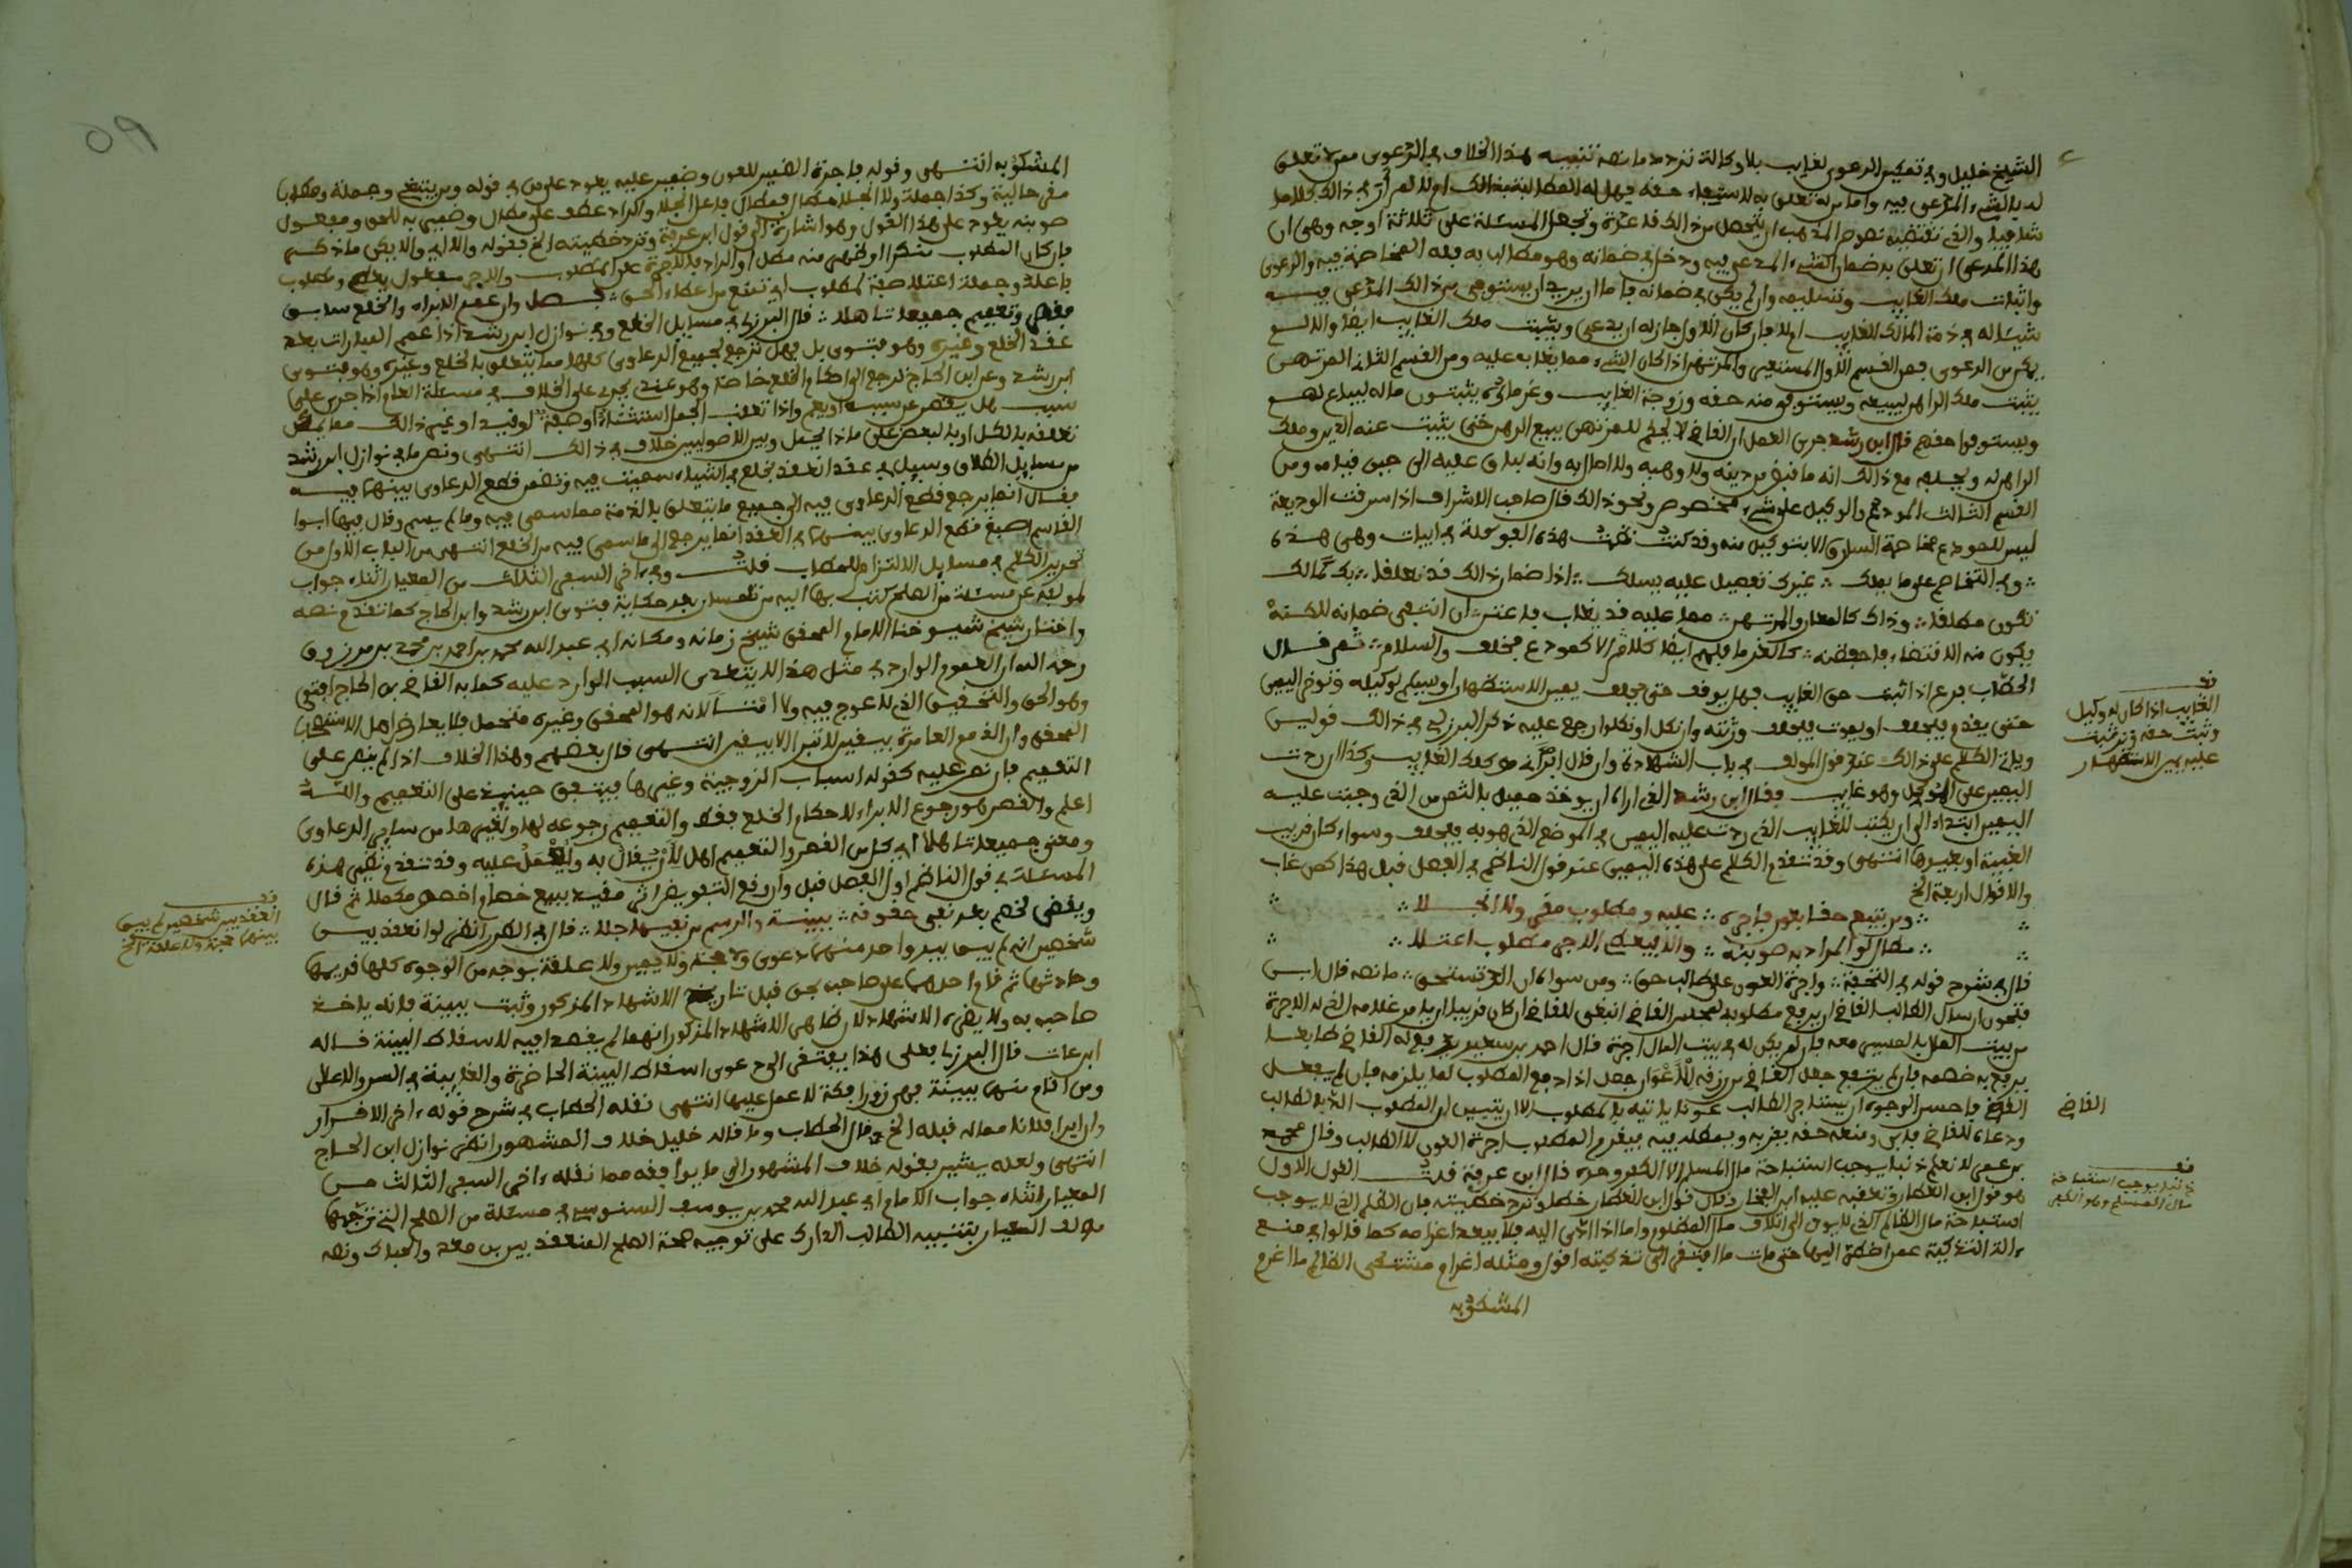 الشيخ خليل وفي تمكين الدعوى لغايب بلا وكالة تردد ما نصه تنبيه هذا الخلاف في الدعوى ممن لا تعلق
له بالشيء المدعى فيه واما من له تعلق به لاستيفاء حقه فهل له المطالبة بذالك ام لا لم أر في ذالك كلاما
شافيا والذي تقتضيه نصوص المذهب ان يتحصل من ذالك قاعدة وتجعل المسئلة على ثلاثة اوجه وهي ان
هذا المدعي ان تعلق به ضمان الشيء المدعى فيه ودخل في ضمانه وهو مطالب به فله المخاصمة فيه والدعوى
واثبات ملك الغايب وتسليمه وان لم يكن في ضمانه فاما ان يريد ان يستوفي من ذالك المدعى فيه
شيئا له في ذمة المالك الغايب ام لا فان كان الاول جاز له ان يدعي ويثبت ملك الغايب ايضا والا لم
يمكن من الدعوى فمن القسم الاول المستعير والمرتهن اذا كان الشيء مما يغاب عليه ومن القسم الثاني المرتهن
يثبت ملك الراهن ليبيعه ويستوفي منه حقه وزوجة الغايب وغرماؤه يثبتون ماله ليباع لهم
ويستوفوا حقهم قال ابن رشد جرى العمل ان القاضي لا يحكم للمرتهن ببيع الرهن حتى يثبت عنده الدين وملك
الراهن له ويحلفه مع ذالك انه ما قبض من دينه ولا وهبه ولا احال به وانه لباق عليه الى حين قيامه ومن
القسم الثالث المودع والوكيل على شيء مخصوص ونحو ذالك قال صاحب الاشراف اذا سرقت الوديعة
ليس للمودع مخاصمة السارق الا بتوكيل منه وقد كنت نظمت هذه المسئلة في ابيات وهي هذه
وفي التخاصم على ما يملك ∴ غيرك تفصيل عليه يسلك ∴ اذا ضمان ذالك قد تعلقا ∴ بك لمالك
تكون مطلقا ∴ وذاك كالمعار والمرتهن ∴ مما عليه قد يغاب فاعتن ∴ ان انتفى ضمانه لكنه
يكون منه الاقتضاء فاحفظنه ∴ كالغرما فلهم ايضا كلام ∴ لا كمودع مخلف والسلام ∴ ثم قال
الحطاب فرع اذا ثبت حق الغايب فهل يوقف حتى يحلف يمين الاستظهار او يسلم لوكيله وتؤخر اليمين
حتى يقدم فيحلف او يموت فيحلف ورثته وان نكل او نكلوا رجع عليه ذكر البرزلي في ذالك قولين
وياتي الكلام على ذالك عند قول المولف في باب الشهادة وان قال ابرأني موكلك الغايب وكذا ان ردت
اليمين على الموكل وهو غايب فقال ابن رشد الذي اراه ان يوخذ حميل بالثمن من الذي وجبت عليه
اليمين ابتداء الى ان يكتب للغايب الذي ردت عليه اليمين في الموضع الذي هو به فيحلف وسواء كان قريب
الغيبة او بعيدها انتهى وقد تقدم الكلام على هذه اليمين عند قول الناظم في الفصل قبل هذا كمن غاب
والاقوال اربعة الخ
∴ ومن يتبع حقا بعون فاجره ∴ عليه ومطلوب مقر ولا انجلا ∴
∴ مطال لو المراد به صوبنه ∴ والا فيعط الاجر مطلوب اعتلا ∴
قال في شرح قوله في التحفة ∴ واجرة العون على طالب حق ∴ ومن سواه ان الد تستحق ∴ ما نصه قال ابن
فتحون ارسال الطالب القاضي ان يرفع مطلوبه لمجلس القاضي انبغى للقاضي ان كان قريبا ان يامر غلامه الذي له الاجرة
من بيت المال بالمسير معه فان لم يكن له في بيت المال اجرة قال احمد بن سعيد يدفع له القاضي طابعا
يرفع به خصمه فان لم يرتفع جعل القاضي من رزقه للاعوان جعل اذا دفع المطلوب لما يلزمه فان لم يفعل
القاضي فاحسن الوجوه ان يستاجر الطالب عونا ياتيه بالمطلوب الا ان يتبين ان المطلوب الد بالطالب
ودعاه للقاضي فابى ومنعه حقه يضر به ويمطله فيه فيغرم المطلوب اجرة العون لا الطالب وقال محمد
بن عمر لا نعلم ذنبا يوجب استباحة مال المسلم الا الكفر وحده قال ابن عرفة قلت القول الاول
هو قول ابن العطار وتعقبه عليه ابن الفخار وقال قول ابن العطار خطأ وترد تخطيته بان الظلم الذي لا يوجب
استباحة مال الظالم الذي لا يؤول الى اتلاف مال المظلوم واما اذا ادى اليه فلا يبعد اغرامه كما قالوا في منع
ءالة التذكية عمن اضطر اليها حتى مات ما افتقر الى تذكيته اقول ومثله اغرام مشتكي الظالم ما اغرم
المشكو به
قف
الغايب اذا كان له وكيل
وثبت حقه وترتبت
عليه يمين الاستظهار
القاضي
قف
ذنبا يوجب استباحة
مال المسلم وهو الكفر
59
المشكو به انتهى وقوله فاجرة الضمير للعون وضمير عليه يعود على من في قوله ومن يتبع وجملة ومطلوب
مقر حالية وكذا جملة ولا انجلا مطال فمطال فاعل انجلا والراد عطف على مطال وضمير به للحق ومفعول
صوبنه يعود على هذا القول وهو اشارة الى قول ابن عرفة وترد تخطيته الخ فقوله والا اي والا يكن ما ذكر
فان كان المطلوب منكرا او ظهر منه مطل او الد بالاجرة على المطلوب والاجر مفعول يعط ومطلوب
فاعله وجملة اعتلا صفة لمطلوب اي تمنع من اعطاء الحق ∴ فصل وان عمم الابراء والخلع سابق
فقصر وتعميم جميعا تاهلا ∴ قال البرزلي في مسايل الخلع وفي نوازل ابن رشد اذا عمم المبارات بعد
عقد الخلع وغيره وهو فتوى بل فهل ترجع لجميع الدعاوى كلها مما يتعلق بالخلع وغيره وهو فتوى
ابن رشد وعن ابن الحاج ترجع الى احكام الخلع خاصة وهو عندي يجري على الخلاف في مسئلة العام اذا جرى على
سبب هل يقصر على سببه او يعم واذا تعقب الجمل استثناء او صفة او قيد او غير ذالك مما يمكن
تعلقه بالكل او بالبعض على ماذا يحمل وبين الاصوليين خلاف في ذالك انتهى ونص ما في نوازل ابن رشد
من مسايل الطلاق وسيل في عقد انعقد بخلع في اشياء سميت فيه وتضمن قطع الدعاوى بينهما فيه
فقال انما يرجع قطع الدعاوى فيه الى جميع ما يتعلق بالذمة مما سمي فيه وما لم يسم وقال فيها ابوا
القاسم اصبغ قطع الدعاوى بينهما في العقد انما يرجع الى ما سمي فيه من الخلع انتهى من الباب الاول من
تحرير الكلام في مسايل الالتزام للحطاب قلت وفي ءاخر السفر الثالث من المعيار اثناء جواب
لمولفه عن مسئلة من الصلح كتب بها اليه من تلمسان بعد حكاية فتوى ابن رشد وابن الحاج كما تقدم ونصه
واختار شيخ شيوخنا الامام المحقق شيخ زمانه ومكانه ابي عبد الله محمد بن احمد بن محمد بن مرزوق
رحمه الله ان العموم الوارد في مثل هذا لا يتعدى السبب الوارد عليه كما به القاضي بن الحاج افتى
وهو الحق والتحقيق الذي لا عوج فيه ولا امتا لانه هو المحقق وغيره محتمل فلا يعارض اصل الاستصحاب
المحقق وان الذمم العامرة بيقين لا تبرا الا بيقين انتهى قال بعضهم وهذا الخلاف اذا لم ينص على
التعميم فان نص عليه كقوله اسباب الزوجية وغيرها فيتفق حينئذ على التعميم والله
اعلم والقصر هو رجوع الابراء لاحكام الخلع فقط والتعميم رجوعه لها ولغيرها من ساير الدعاوى
ومعنى جميعا تاهلا اي كل من القصر والتعميم اهل لان يقال به والعمل عليه وقد تقدم نظير هذه
المسئلة في قول الناظم اول الفصل قبل وان وقع التفويض اثر مقيد ببيع خصام او اخصص مكملا ثم قال
ويقضى لخصم بعد نفي حقوقه ∴ ببينة والرسم من نفيها جلا ∴ قال في الطرر انظر لو انعقد بين
شخصين انه لم يبق بيد واحد منهما دعوى ولا حجة ولا يمين ولا علقة بوجه من الوجوه كلها قديمها
وحادثها ثم قام احدهما على صاحبه بحق قبل تاريخ الاشهاد المذكور وثبت ببينة فانه ياخذ
صاحبه به ولا يضره الاشهاد لان ظاهر الاشهاد المذكور انهما لم يقصدا فيه لاسقاط البينة قاله
ابن عات قال البرزلي فعلى هذا يفتقر الى دعوى اسقاط البينة الحاضرة والغايبة في السر والاعلان
ومن اقام منهما ببينة فهي زور وافكة لا عمل عليها انتهى نقله الحطاب في شرح قوله ءاخر الاقرار
وان ابرا فلانا مما له قبله الخ وقال الحطاب وما قاله خليل خلاف المشهور انظر نوازل ابن الحاج
انتهى ولعله يشير بقوله خلاف المشهور الى ما يوافقه مما نقله ءاخر السفر الثالث من
المعيار اثناء جواب الامام ابي عبد الله محمد بن يوسف السنوسي في مسئلة من الصلح التي ترجمها
مولف المعيار بتنبيه الطالب الدارك على توجيه صحة الصلح المنعقد بين بن صعد والحباك ونصه
قف
انعقد بين شخصين لم يبق
بينهما حجة ولا علقة الخ